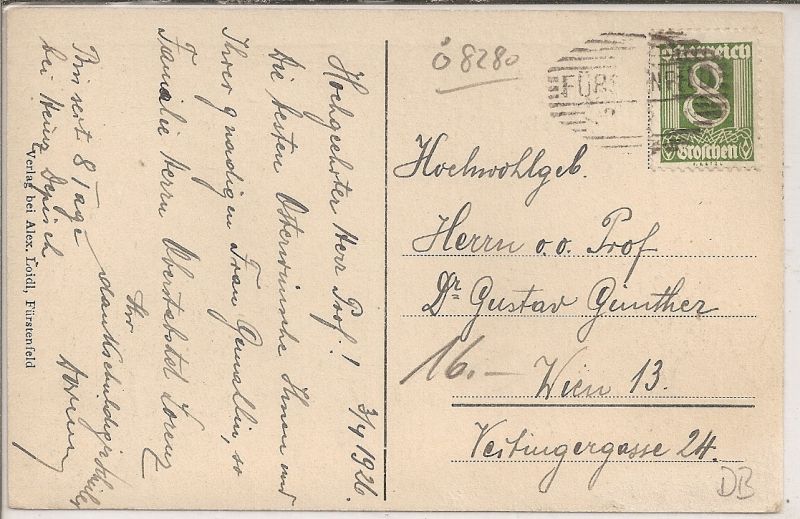 Hochgeehrter Herr Prof! 3/4 1926.
die besten Osterwünsche Ihnen und
Ihrer gnädigen Frau Gemahlin, so
Familie Herrn Oberstabstat Lorenz
Ihr
dankschuldiger Schüler
Bin seit 8 Tage
bei Heinz Depisch
Verlag bei Alex. Loidl, Fürstenfeld
ö 8280
FÜRS NFE
Österreich
8
Groschen
Hochwohlgeb.
Herrn o.ö. Prof
Dr Gustav Günther
16.—
Wien 13.
Veitingergasse 24.
DB